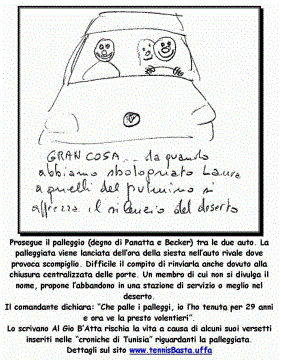 GRAN COSA... da quando
abbiamo sbolognato Laura
a quelli del pulmino si
apprezza il silenzio del deserto
Prosegue il palleggio (degno di Panatta e Becker) tra le due auto. La
palleggiata viene lanciata dell'ora della siesta nell'auto rivale dove
provoca scompiglio. Difficile il compito di rinviarla anche dovuto alla
chiusura centralizzata delle porte. Un membro di cui non si divulga il
nome, propone l'abbandono in una stazione di servizio o meglio nel
deserto.
Il comandante dichiara: "Che palle i palleggi, io l'ho tenuta per 29 anni
e ora ve la presto volentieri".
Lo scrivano Al Gio B'Atta rischia la vita a causa di alcuni suoi versetti
inseriti nelle "croniche di Tunisia" riguardanti la palleggiata.
Dettagli sul sito www.tennisBasta.uffa